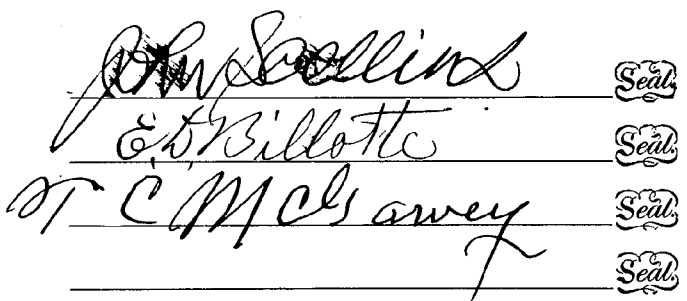 John Scollins Seal.
E. D. Billotte Seal.
T C McGarvey Seal.
Seal.